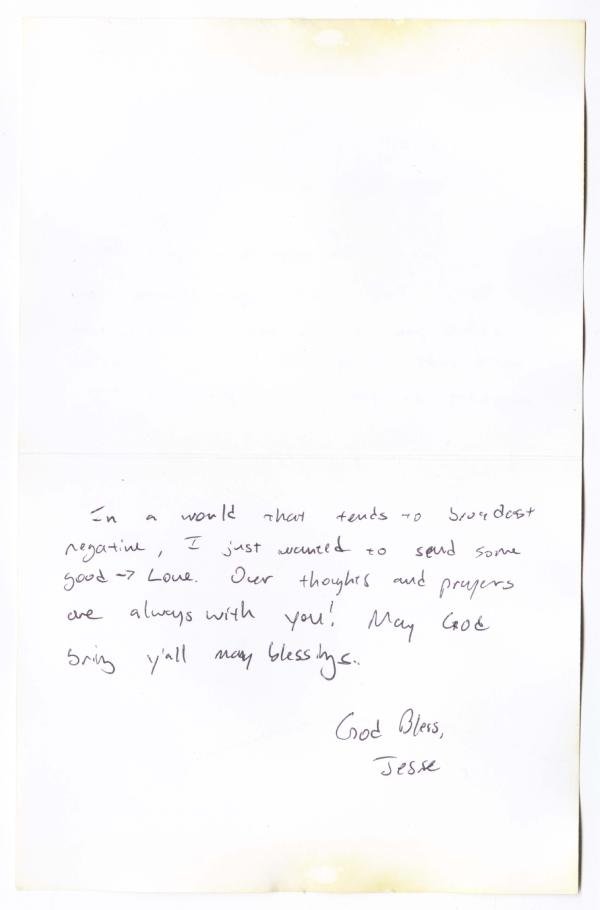 In a world that tends to broadcast
negative, I just wanted to send some
good → Love. Our thoughts and prayers
are always with you! May God
bring y'all many blessings.
God Bless,
Jesse